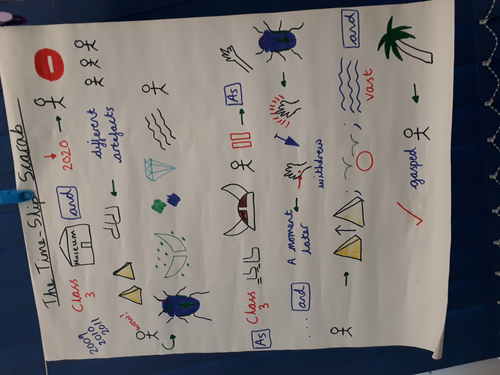 The Time-Slip Scarab
Class
3
Museum
and
2020
2009
2010
2011
different
artefacts
"wow!"
As
Class
3
As
... and
A moment
later
withdrew
;
;
vast
and
gasped